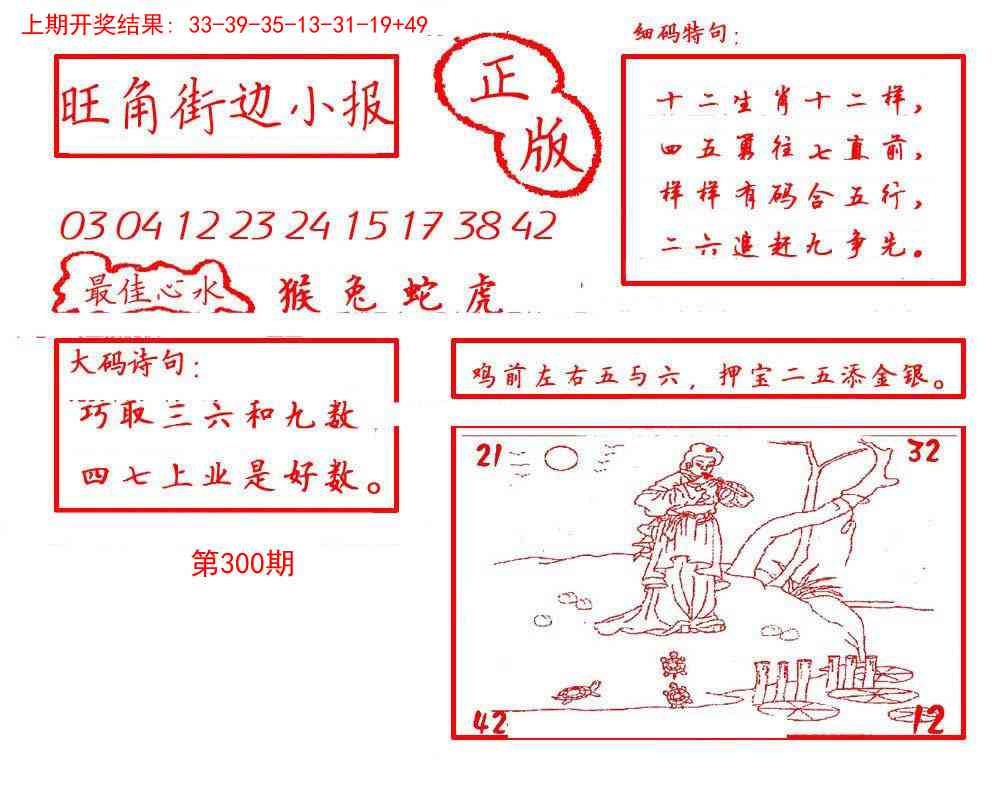 上期开奖结果: 33-39-35-13-31-19+49
旺角街边小报
正
版
细码特句:
十二生肖十二样,
四五勇往七直前,
样样有码合五行,
二六追赶九争先。
03 04 12 23 24 15 17 38 42
最佳心水
猴兔蛇虎
大码诗句:
巧取三六和九数
四七上业是好数。
鸡前左右五与六, 押宝二五添金银。
21
32
42
12
第300期